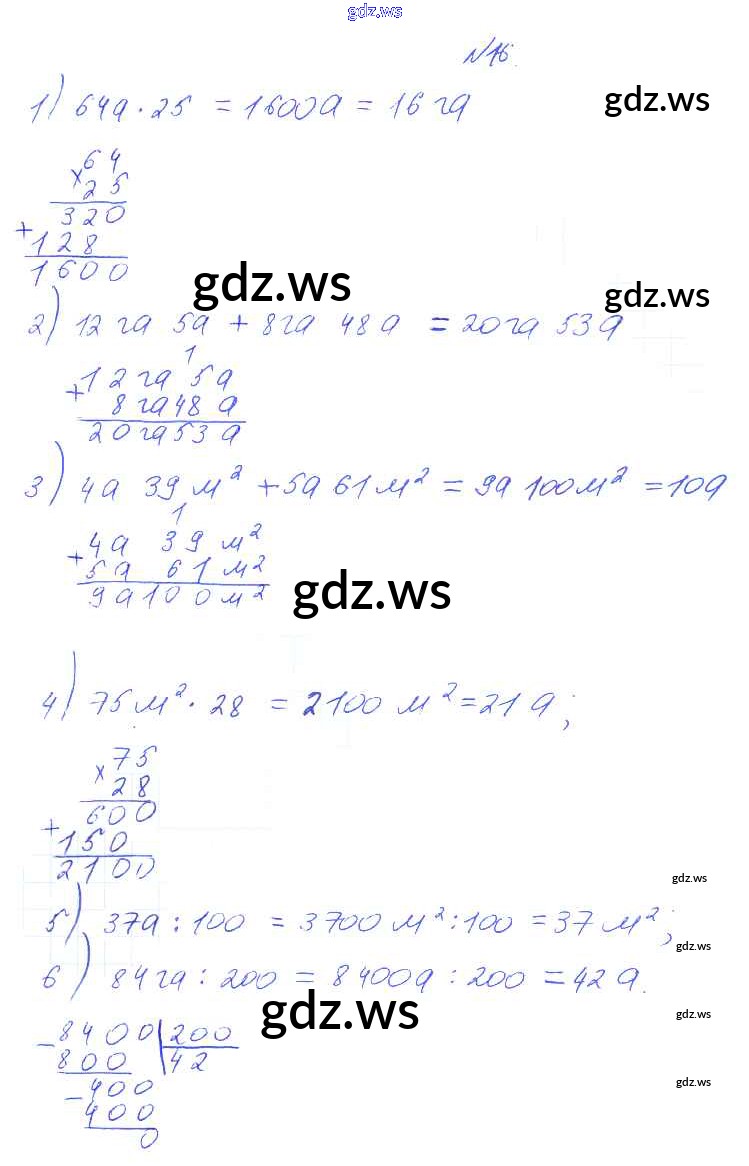 gdz.ws
N16.
1) 64а · 25 = 1600а = 16 га
gdz.ws
× 64
25
320
+ 128
1600
gdz.ws
gdz.ws
2) 12 га 5а + 8га 48а = 20га 53а
1
+ 12 га 5а
8 га 48 а
20 га 53 а
3) 4а 39 м² + 5а 61 м² = 9а 100 м² = 10а
1
+ 4а 39 м²
5а 61 м²
9а 100 м²
gdz.ws
4) 75 м² · 28 = 2100 м² = 21 а;
× 75
28
600
+ 150
2100
gdz.ws
5) 37а : 100 = 3700 м² : 100 = 37 м²;
gdz.ws
6) 84га : 200 = 8400а : 200 = 42 а.
gdz.ws
gdz.ws
- 8400 | 200
800 42
- 400
400
0
gdz.ws